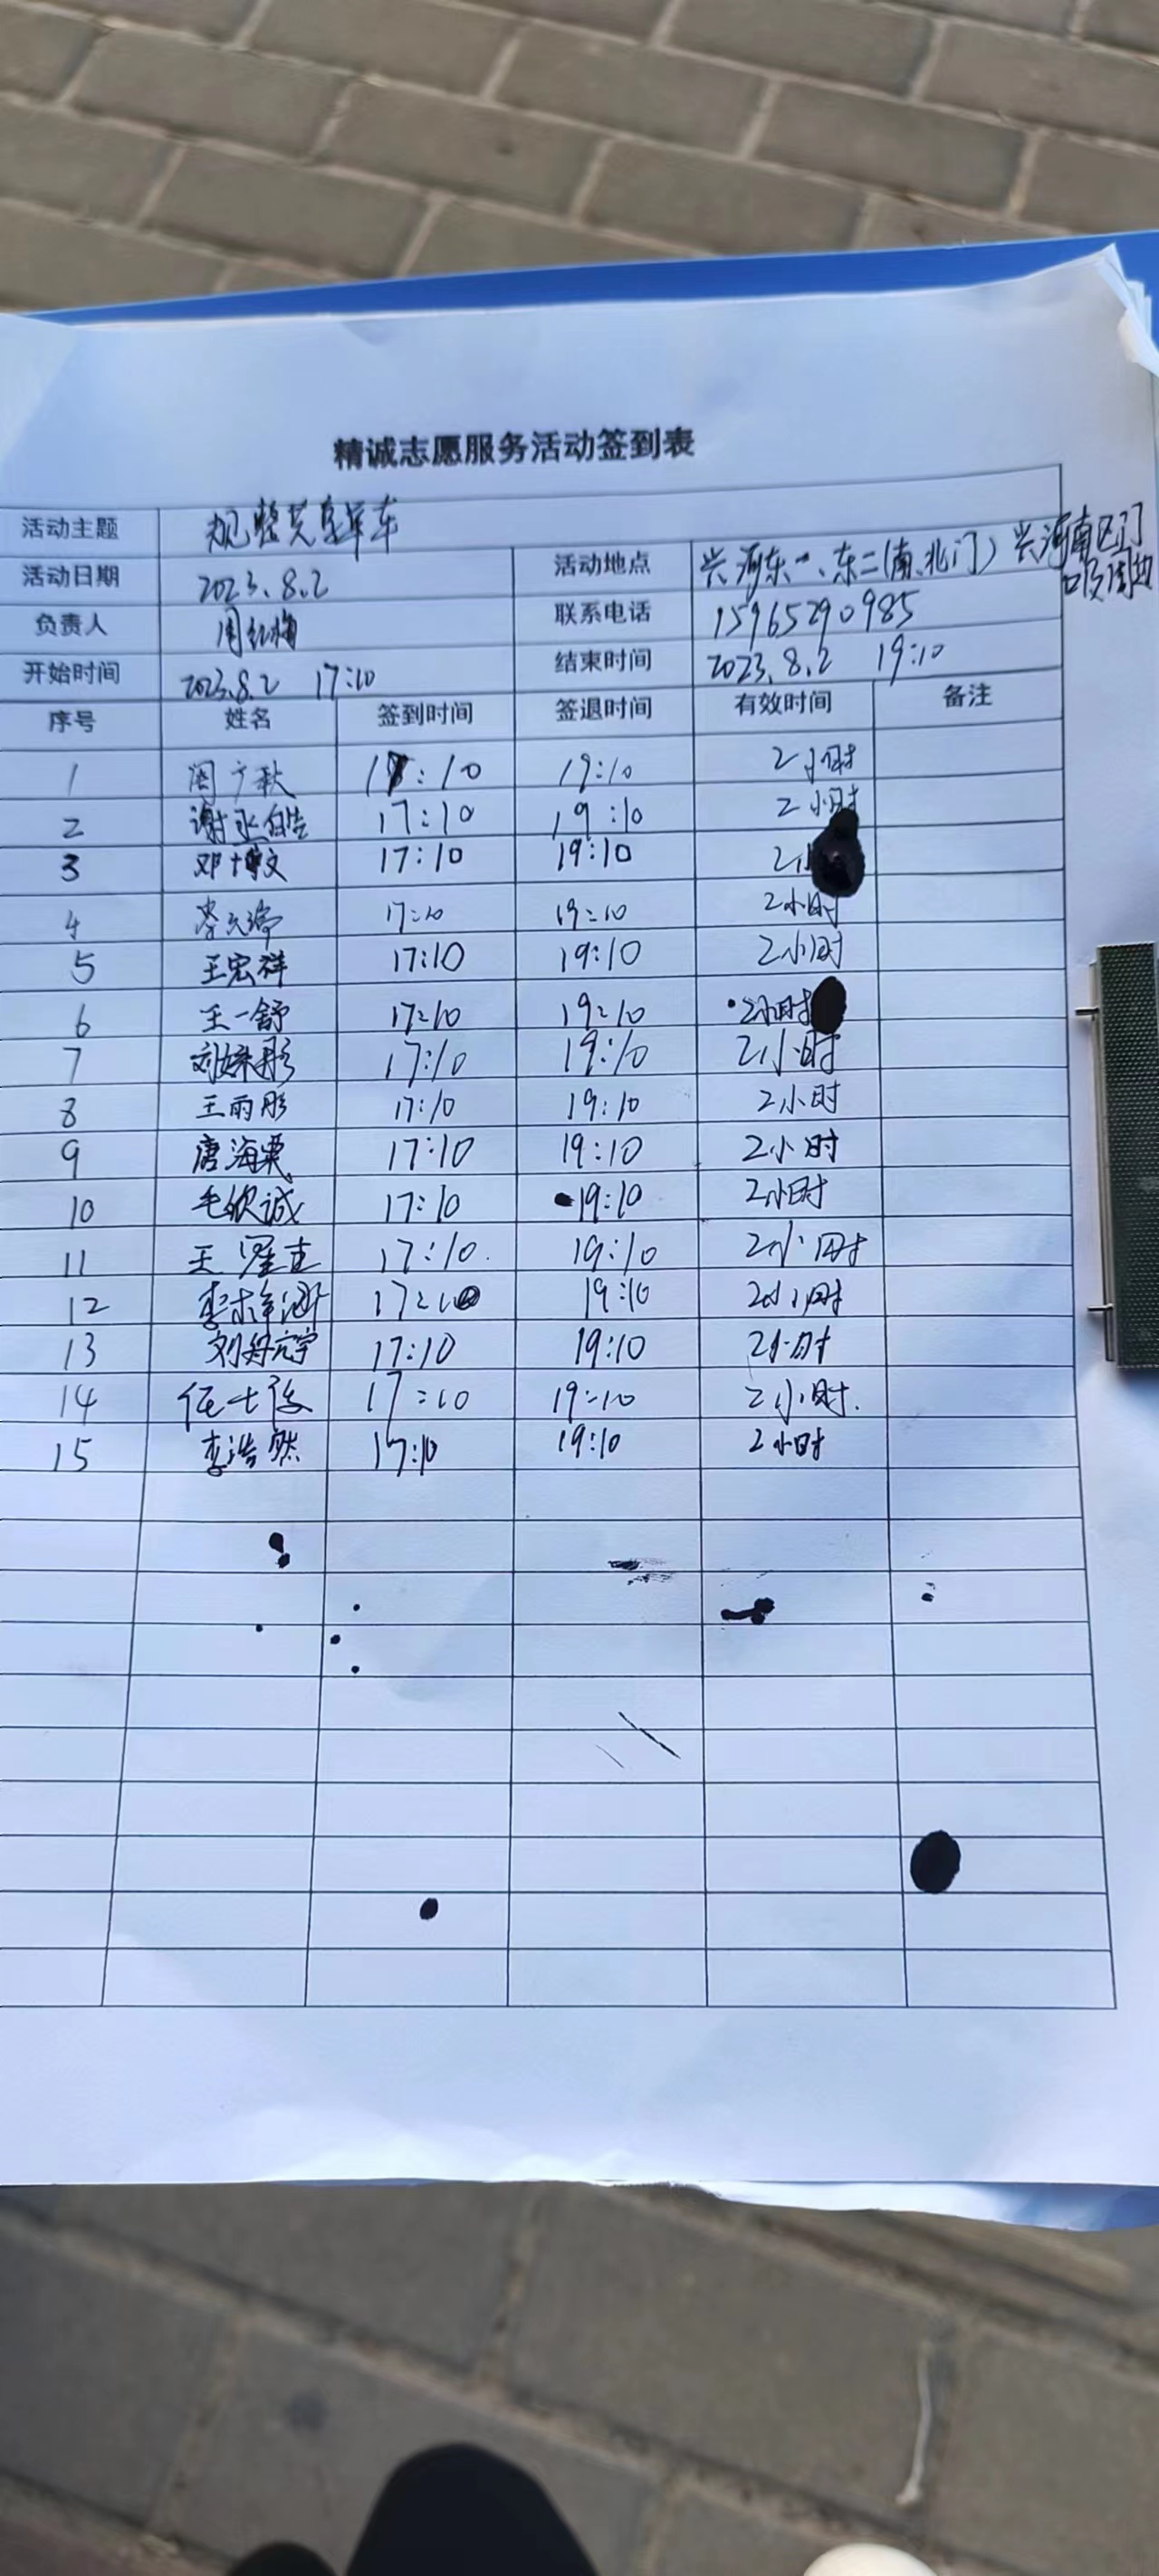 精诚志愿服务活动签到表
活动主题 规整共享单车
活动日期 2023.8.2 活动地点 兴河东一、东二(南、北门) 兴河南区门口及周边
负责人 周红梅 联系电话 15965290985
开始时间 2023.8.2 17:10 结束时间 2023.8.2 19:10
序号 姓名 签到时间 签退时间 有效时间 备注
1 17:10 19:10 2小时
2 谢丞皓 17:10 19:10 2小时
3 邓博文 17:10 19:10 2小
4 17:10 19:10 2小时
5 王宏祥 17:10 19:10 2小时
6 王一舒 17:10 19:10 2小时
7 刘姝彤 17:10 19:10 2小时
8 王雨彤 17:10 19:10 2小时
9 唐海粟 17:10 19:10 2小时
10 毛欣诚 17:10 19:10 2小时
11 17:10 19:10 2小时
12 17:10 19:10 2小时
13 17:10 19:10 2小时
14 17:10 19:10 2小时.
15 李浩然 17:10 19:10 2小时